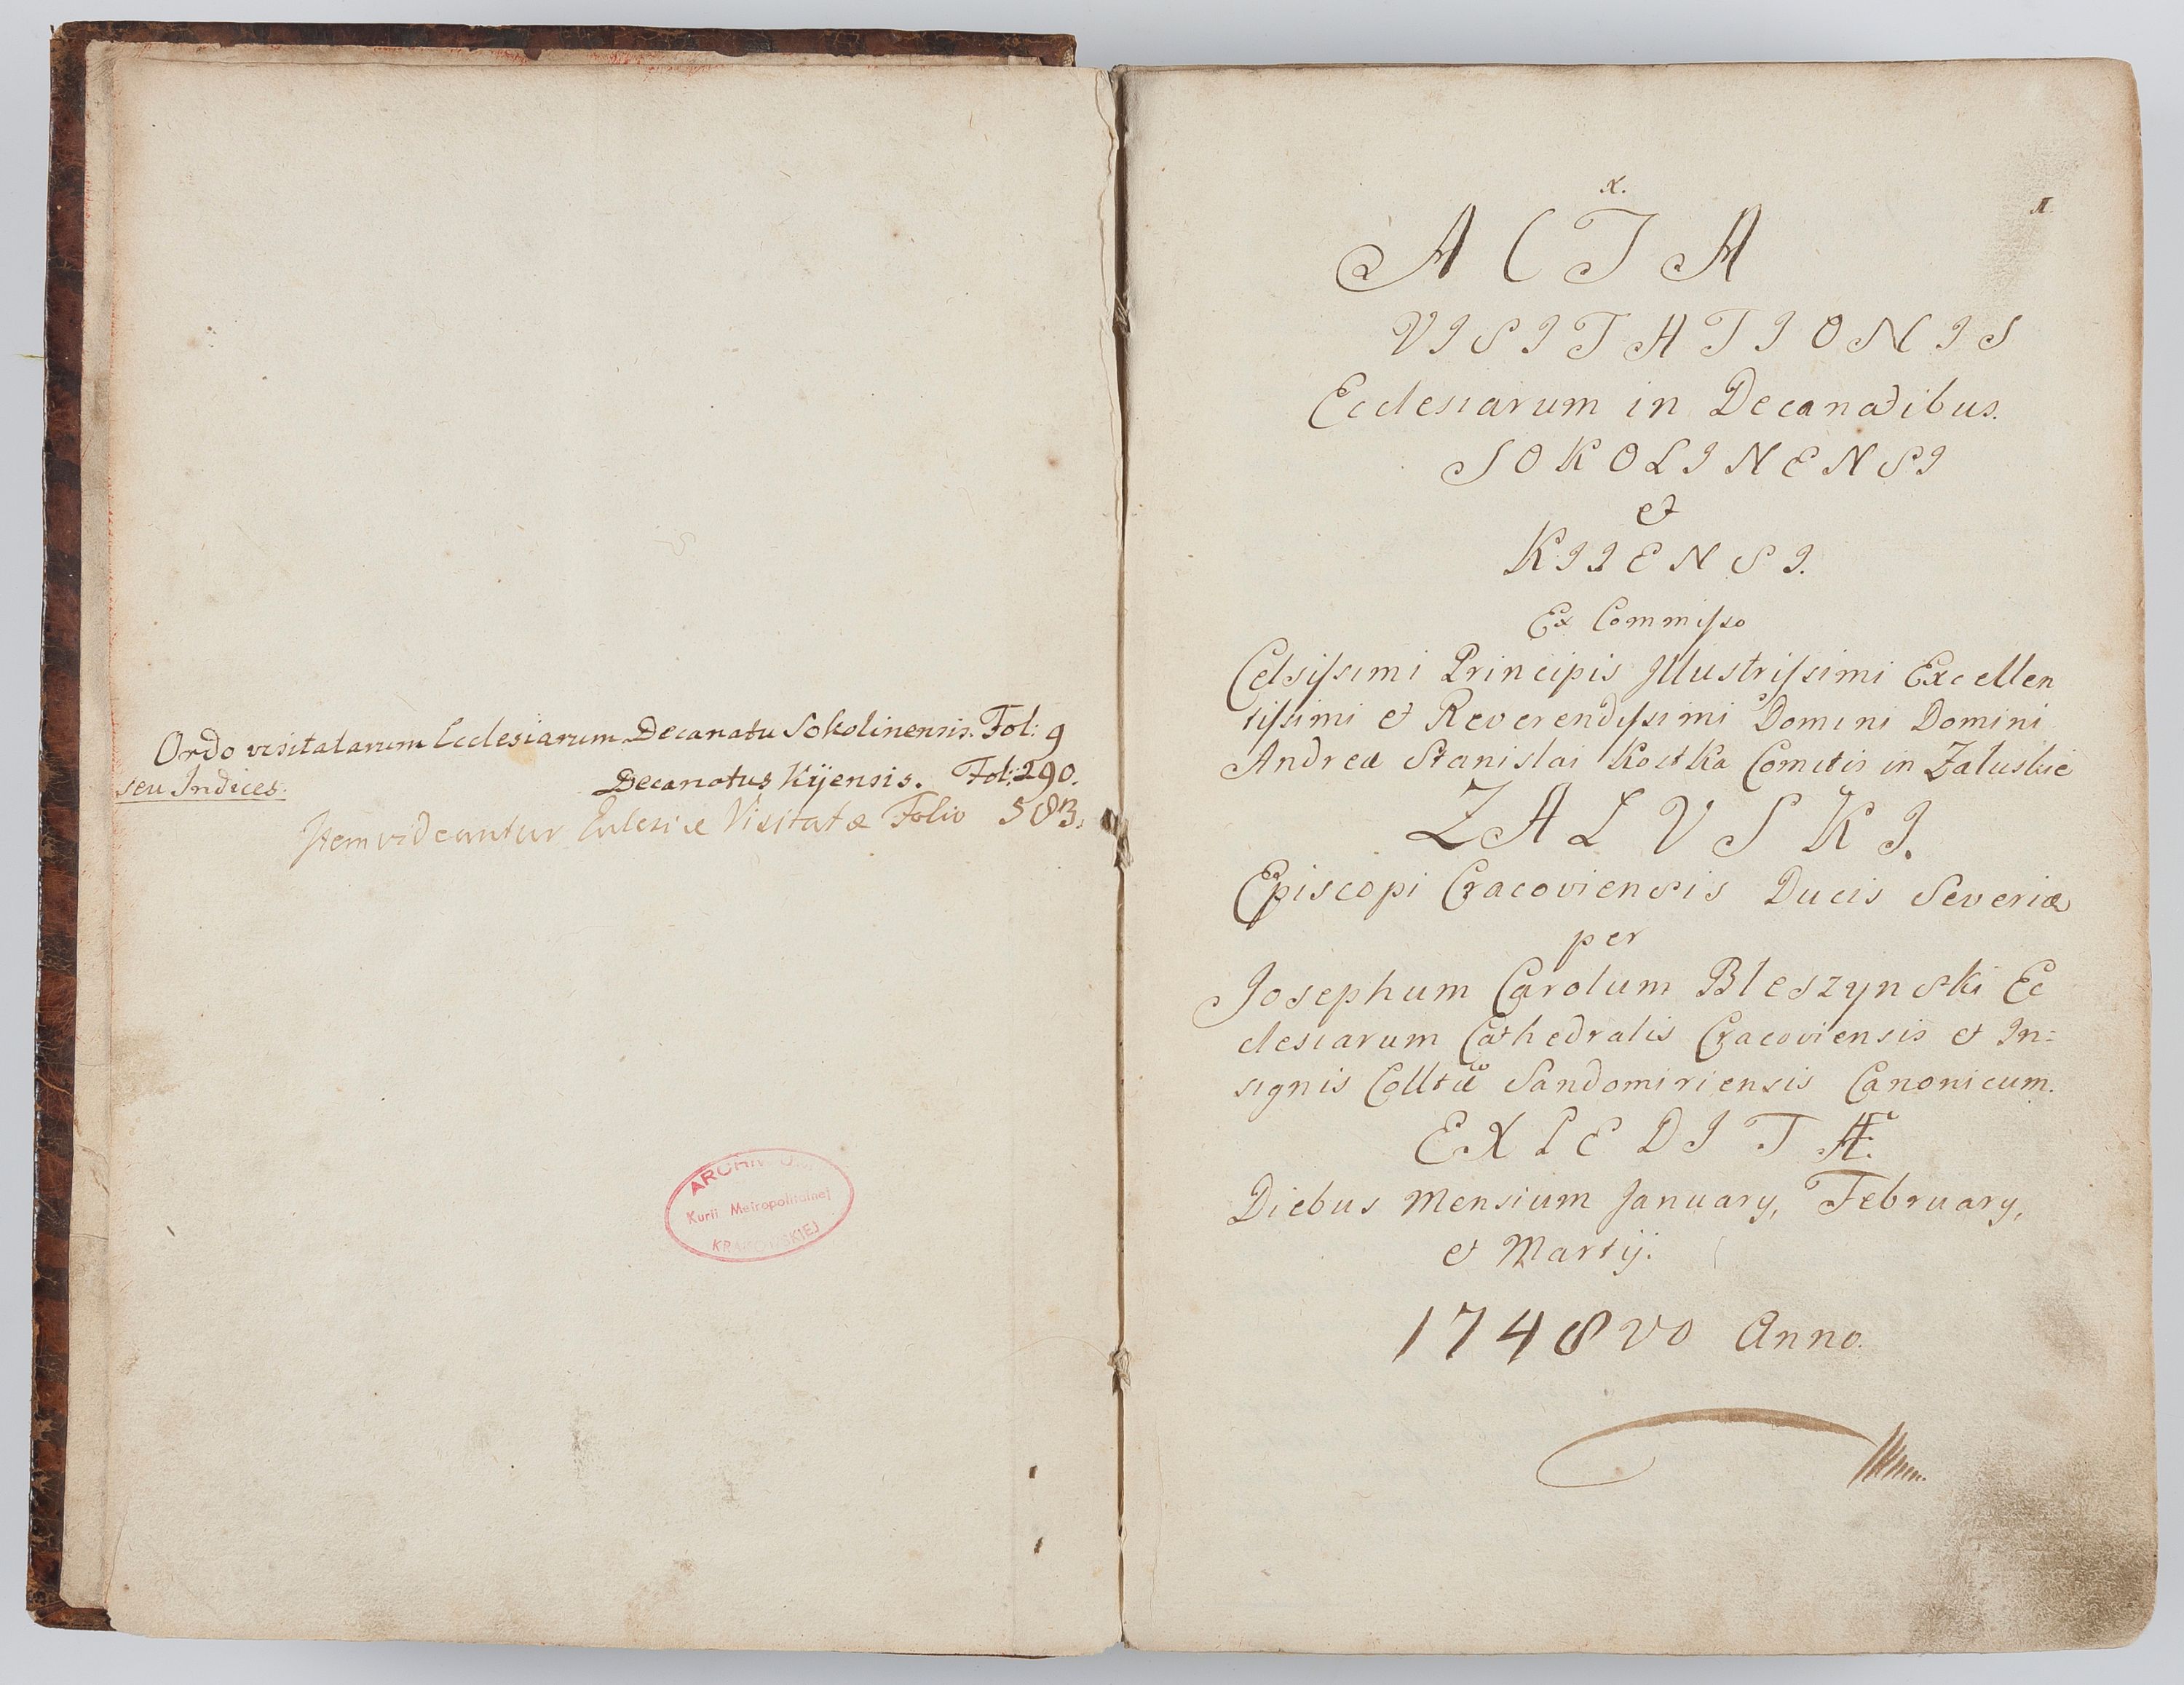 Ordo visitatarum Ecclesiarum Decanatu Sokolinensis. Fol: 9
seu Indices.
Decanatus Kijensis. Fol: 290.
Item videantur Eclesiæ Visitatæ Folio 583.
Kurii Metropolitalnej
x.
1
ACTA
VISITATIONIS
Ecclesiarum in Decanatibus.
SOKOLINENSI
et
KIIENSI.
Ex Commisso
Celsissimi Principis Illustrissimi Excellen
tissimi et Reverendissimi Domini Domini
Andreæ Stanislai Kostka Comitis in Zaluskie
ZALVSKI.
Episcopi Cracoviensis Ducis Severiæ
per
Josephum Carolum Bleszynski Ec
clesiarum Cathedralis Cracoviensis et In=
signis Colltæ Sandomiriensis Canonicum.
EXPEDITÆ.
Diebus Mensium January, February,
et Martij.
1748vo Anno.